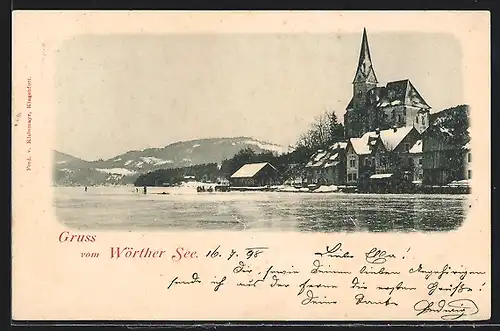 Ferd. v. Kleinmayr, Klagenfurt.
Gruss
vom Wörther See. 16. 7. 98
Liebe Ella!
Dir, sowie Deinen lieben Angehörigen
sende ich aus der Ferne die ersten Grüße!
Deine Dankb
Hedwig